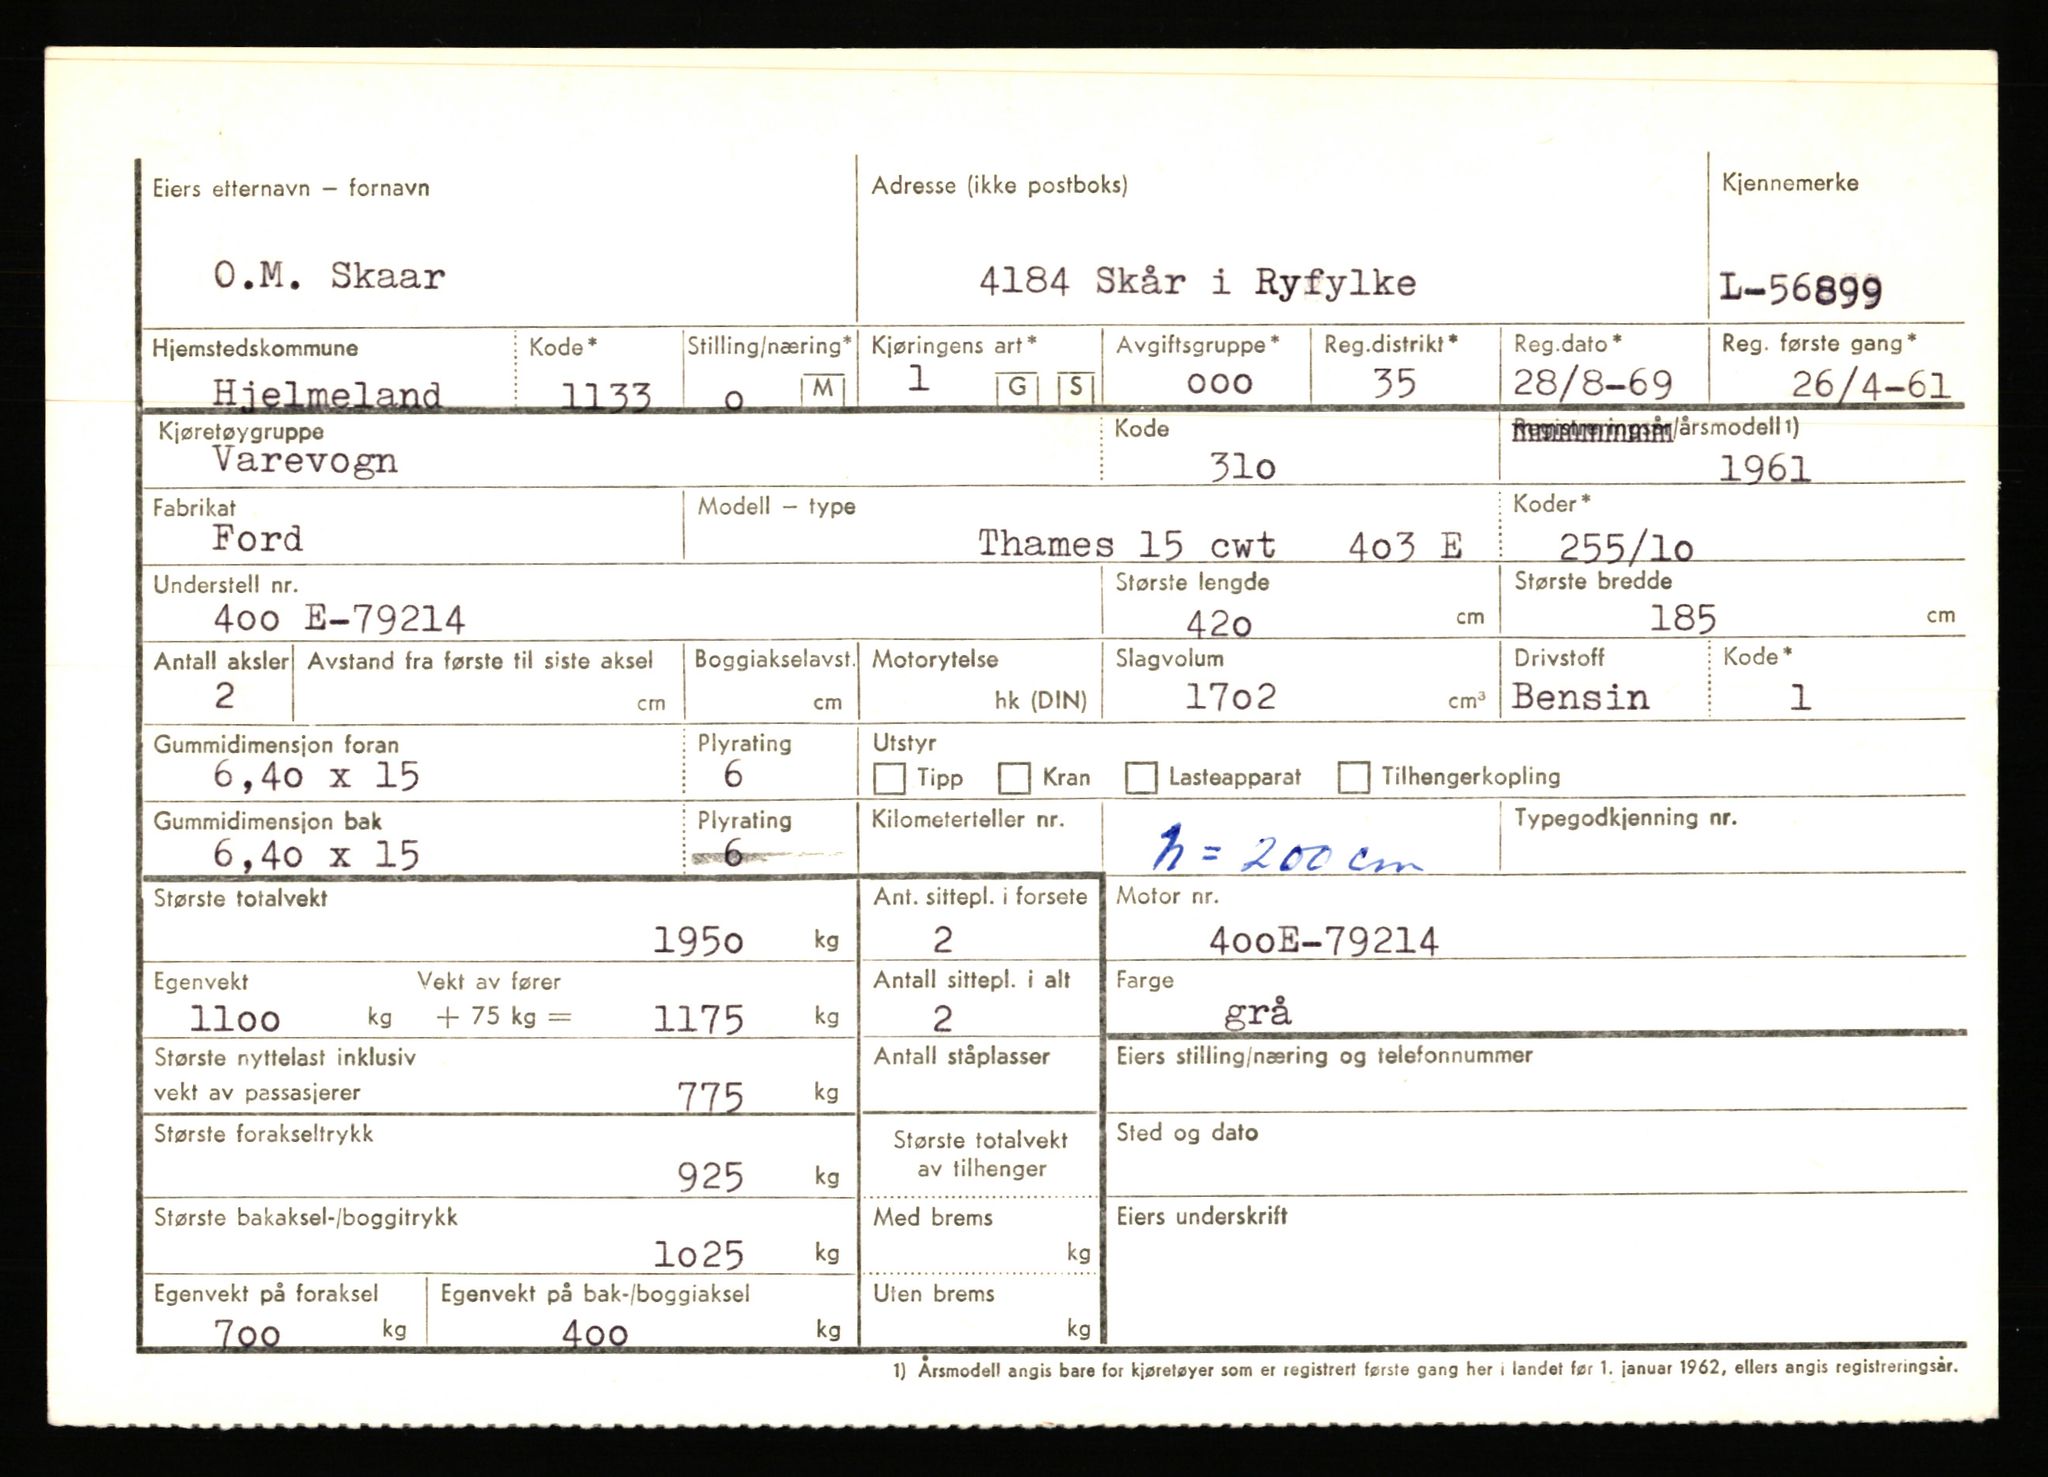 Eiers etternavn – fornavn
Adresse (ikke postboks)
Kjennemerke
O.M. Skaar
4184 Skår i Ryfylke
L-56899
Hjemstedskommune
Kode*
Stilling/næring*
Kjøringens art*
Avgiftsgruppe*
Reg.distrikt*
Reg.dato*
Reg. første gang*
Hjelmeland
1133
o
M
1
G
S
ooo
35
28/8-69
26/4-61
Kjøretøygruppe
Kode
Registreringsår/årsmodell 1)
Varevogn
31o
1961
Fabrikat
Modell – type
Koder*
Ford
Thames 15 cwt 4o3 E
255/1o
Understell nr.
Største lengde
Største bredde
4oo E-79214
42o cm
185 cm
Antall aksler
Avstand fra første til siste aksel
Boggiakselavst.
Motorytelse
Slagvolum
Drivstoff
Kode*
2
cm
cm
hk (DIN)
17o2 cm³
Bensin
1
Gummidimensjon foran
Plyrating
Utstyr
6,4o x 15
6
Tipp
Kran
Lasteapparat
Tilhengerkopling
Gummidimensjon bak
Plyrating
Kilometerteller nr.
h = 200 cm
Typegodkjenning nr.
6,4o x 15
6
Største totalvekt
Ant. sittepl. i forsete
Motor nr.
195o kg
2
4ooE-79214
Egenvekt
Vekt av fører
Antall sittepl. i alt
Farge
11oo kg + 75 kg = 1175 kg
2
grå
Største nyttelast inklusiv
vekt av passasjerer
775 kg
Antall ståplasser
Eiers stilling/næring og telefonnummer
Største forakseltrykk
925 kg
Største totalvekt
av tilhenger
Sted og dato
Største bakaksel-/boggitrykk
1o25 kg
Med brems
kg
Eiers underskrift
Egenvekt på foraksel
Egenvekt på bak-/boggiaksel
Uten brems
7oo kg
4oo kg
kg
1) Årsmodell angis bare for kjøretøyer som er registrert første gang her i landet før 1. januar 1962, ellers angis registreringsår.